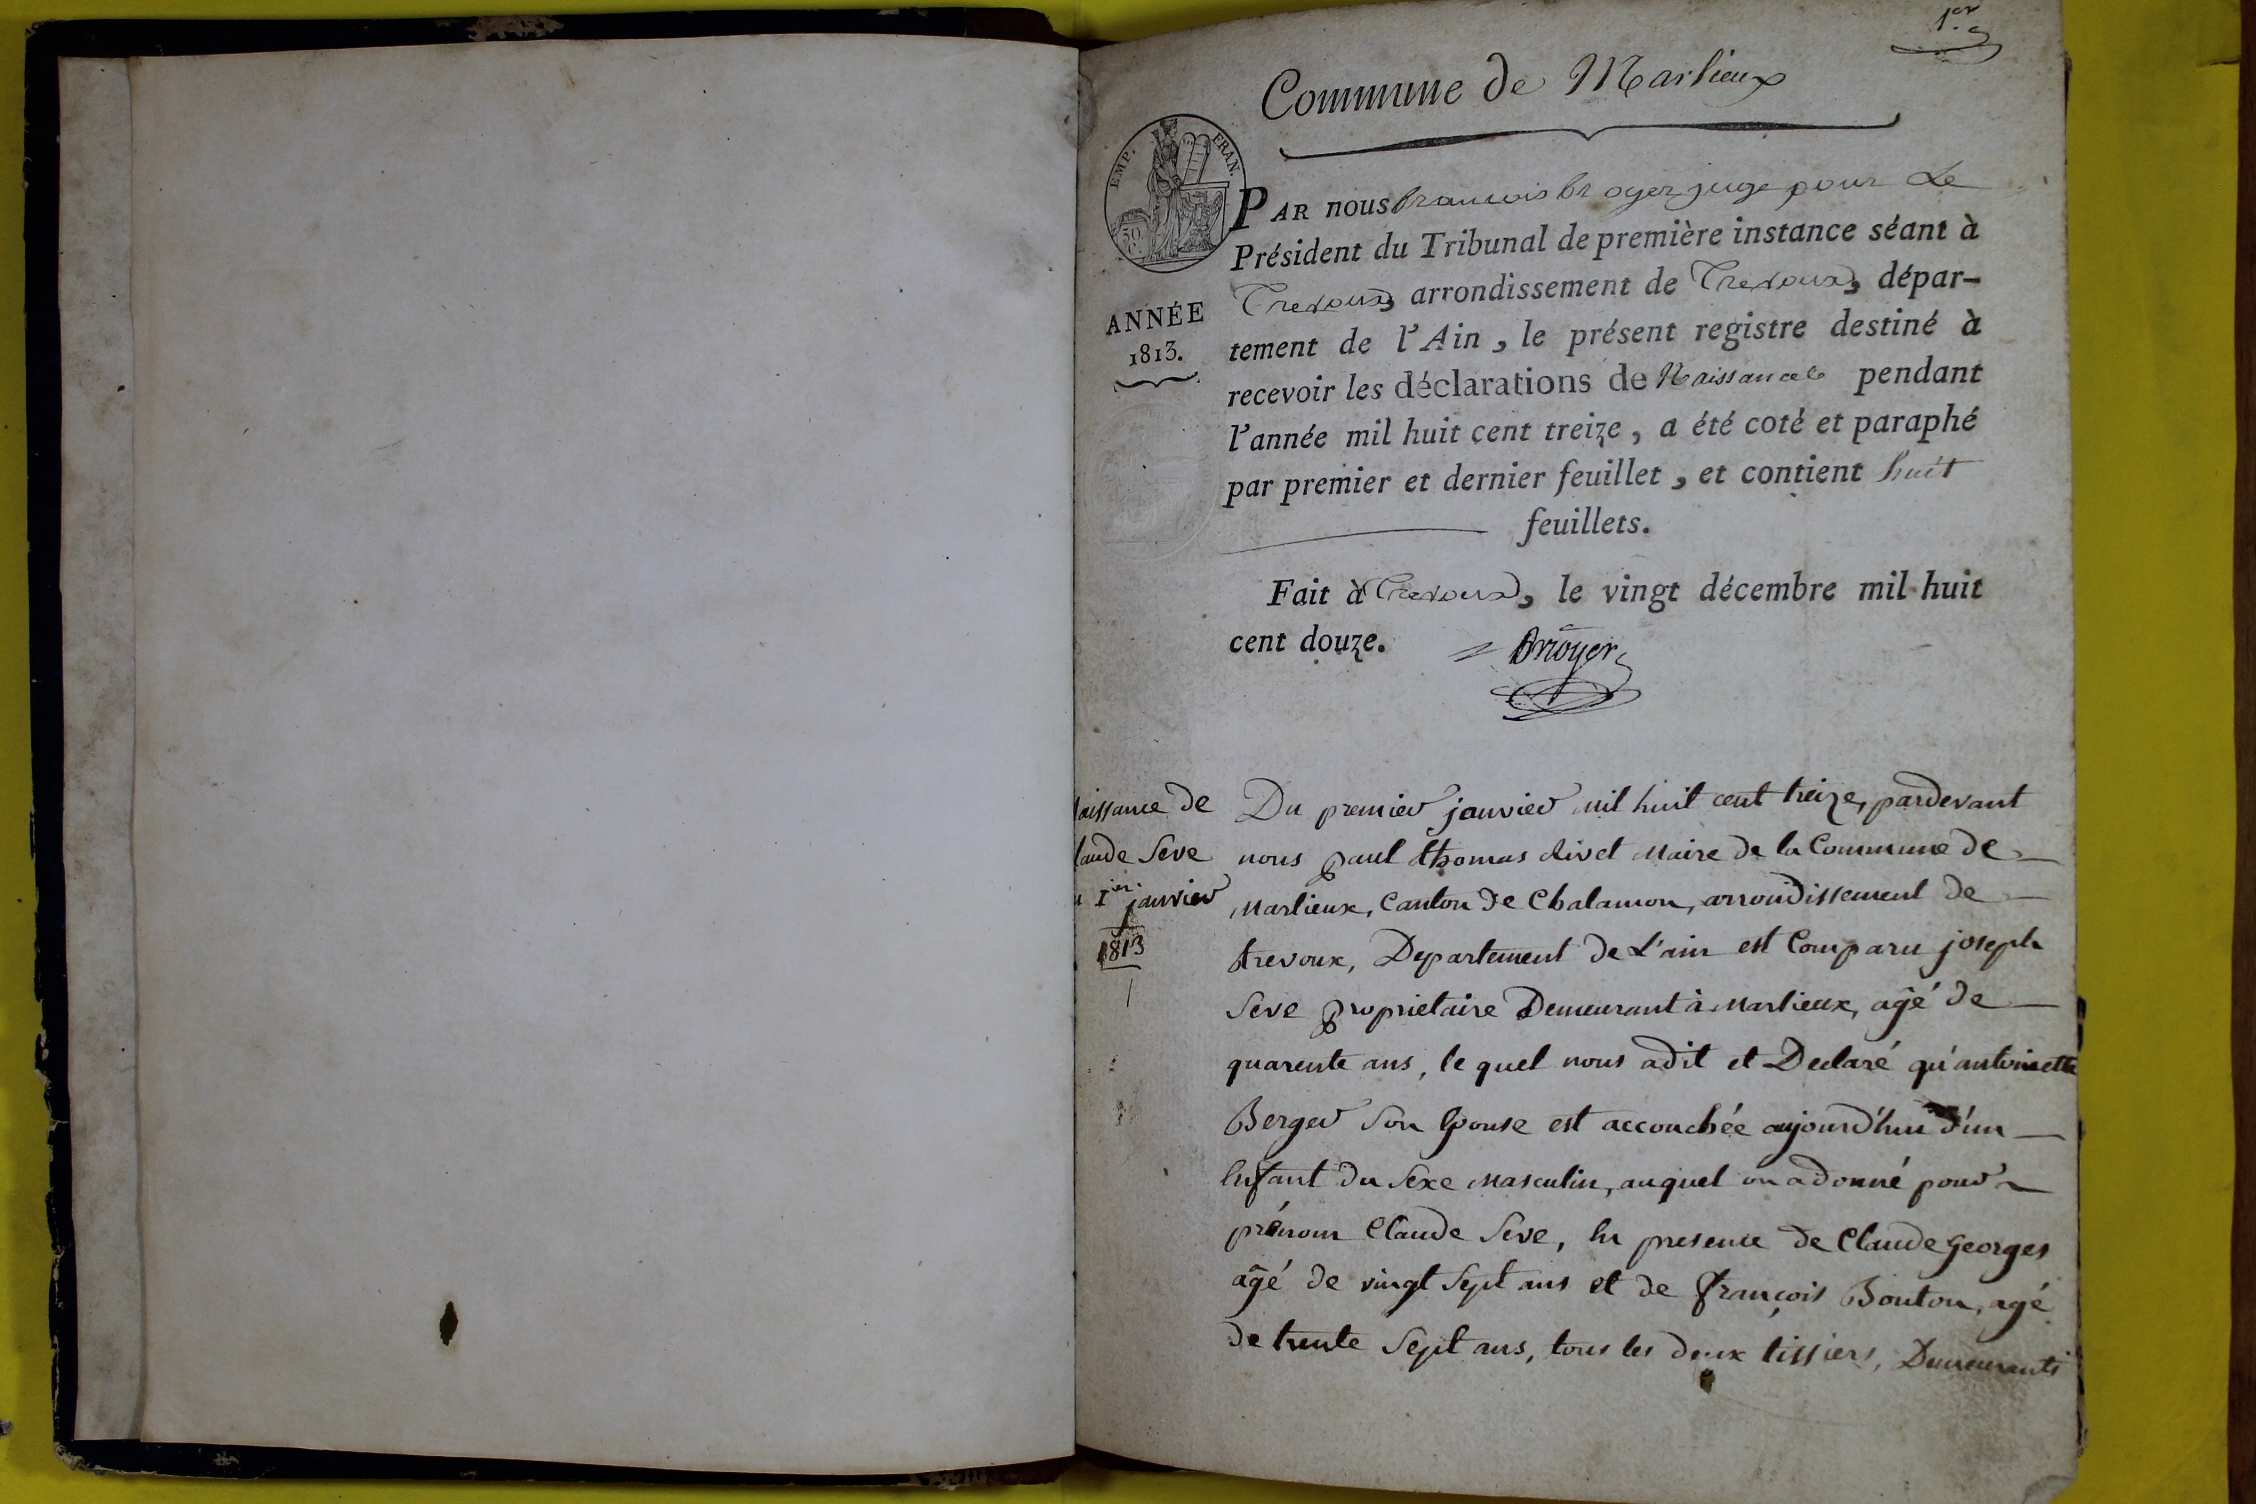 1.er
Commune de Marlieux
EMP. FRAN.
30 C.
ANNÉE
1813.
PAR nous francois broyer juge pour Le
Président du Tribunal de première instance séant à
Trevoux, arrondissement de Trevoux, dépar-
tement de l'Ain, le présent registre destiné à
recevoir les déclarations de Naissances pendant
l'année mil huit cent treize, a été coté et paraphé
par premier et dernier feuillet, et contient huit
feuillets.
Fait à Trevoux, le vingt décembre mil huit
cent douze.
Broyer
aissance de
laude Seve
u 1.ier janvier
1813
Du premier janvier mil huit cent treize, pardevant
nous paul thomas Rivet Maire de la Commune de
Marlieux, Canton de Chalamon, arrondissement de
trevoux, Departement de L'ain est Comparu joseph
Seve proprietaire Demeurant à Marlieux, agé de
quarente ans, le quel nous adit et Declaré qu'antoinette
Berger Son Epouse est accouchée aujourd'hui d'un
Enfant du Sexe Masculin, auquel on adonné pour
prénom Claude Seve, En presence de Claude Georges
âgé de vingt Sept ans et de françois Bouton, agé
de trente Sept ans, tous les deux tissiers, Demeurants